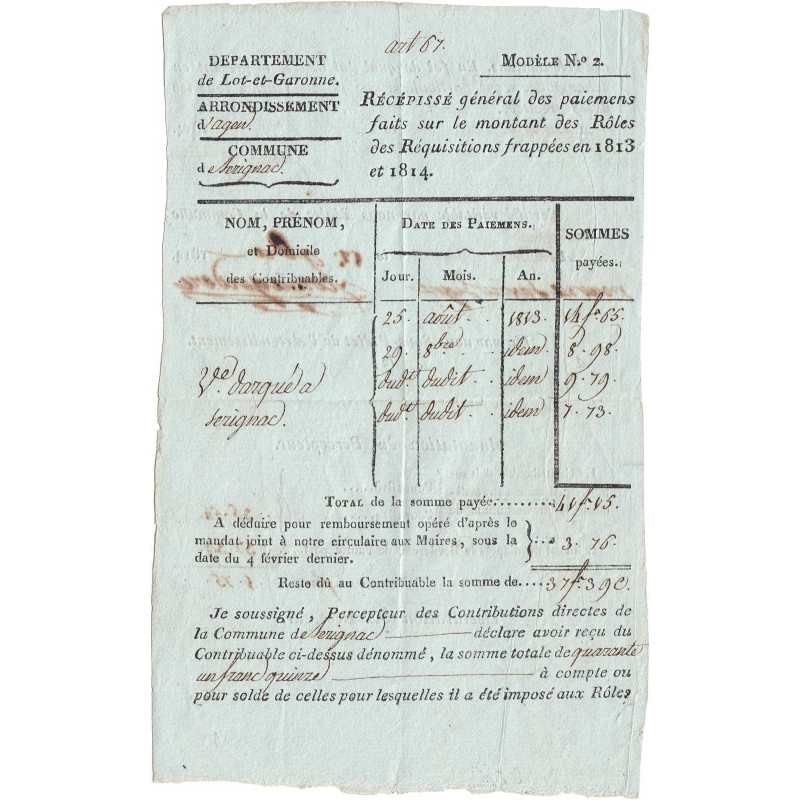 art 67.
DEPARTEMENT
de Lot-et-Garonne.
ARRONDISSEMENT
d'agen.
COMMUNE
de Serignac.
MODÈLE N.o 2.
RÉCÉPISSÉ général des paiemens
faits sur le montant des Rôles
des Réquisitions frappées en 1813
et 1814.
NOM, PRÉNOM,
et Domicile
des Contribuables.
DATE DES PAIEMENS.
Jour. Mois. An.
SOMMES
payées.
25. août. 1813. 14 fs. 65.
29. 8bre idem 8. 98.
dudt. dudit. idem 9. 79.
dudt. dudit. idem 7. 73.
Ve. darqué a
Serignac.
TOTAL de la somme payée......... 41 f. 15.
A déduire pour remboursement opéré d'après le
mandat joint à notre circulaire aux Maires, sous la
date du 4 février dernier.
3. 76.
Reste dû au Contribuable la somme de.... 37 f. 39 c.
Je soussigné, Percepteur des Contributions directes de
la Commune de Serignac déclare avoir reçu du
Contribuable ci-dessus dénommé, la somme totale de quarante
un franc quinze à compte ou
pour solde de celles pour lesquelles il a été imposé aux Rôles